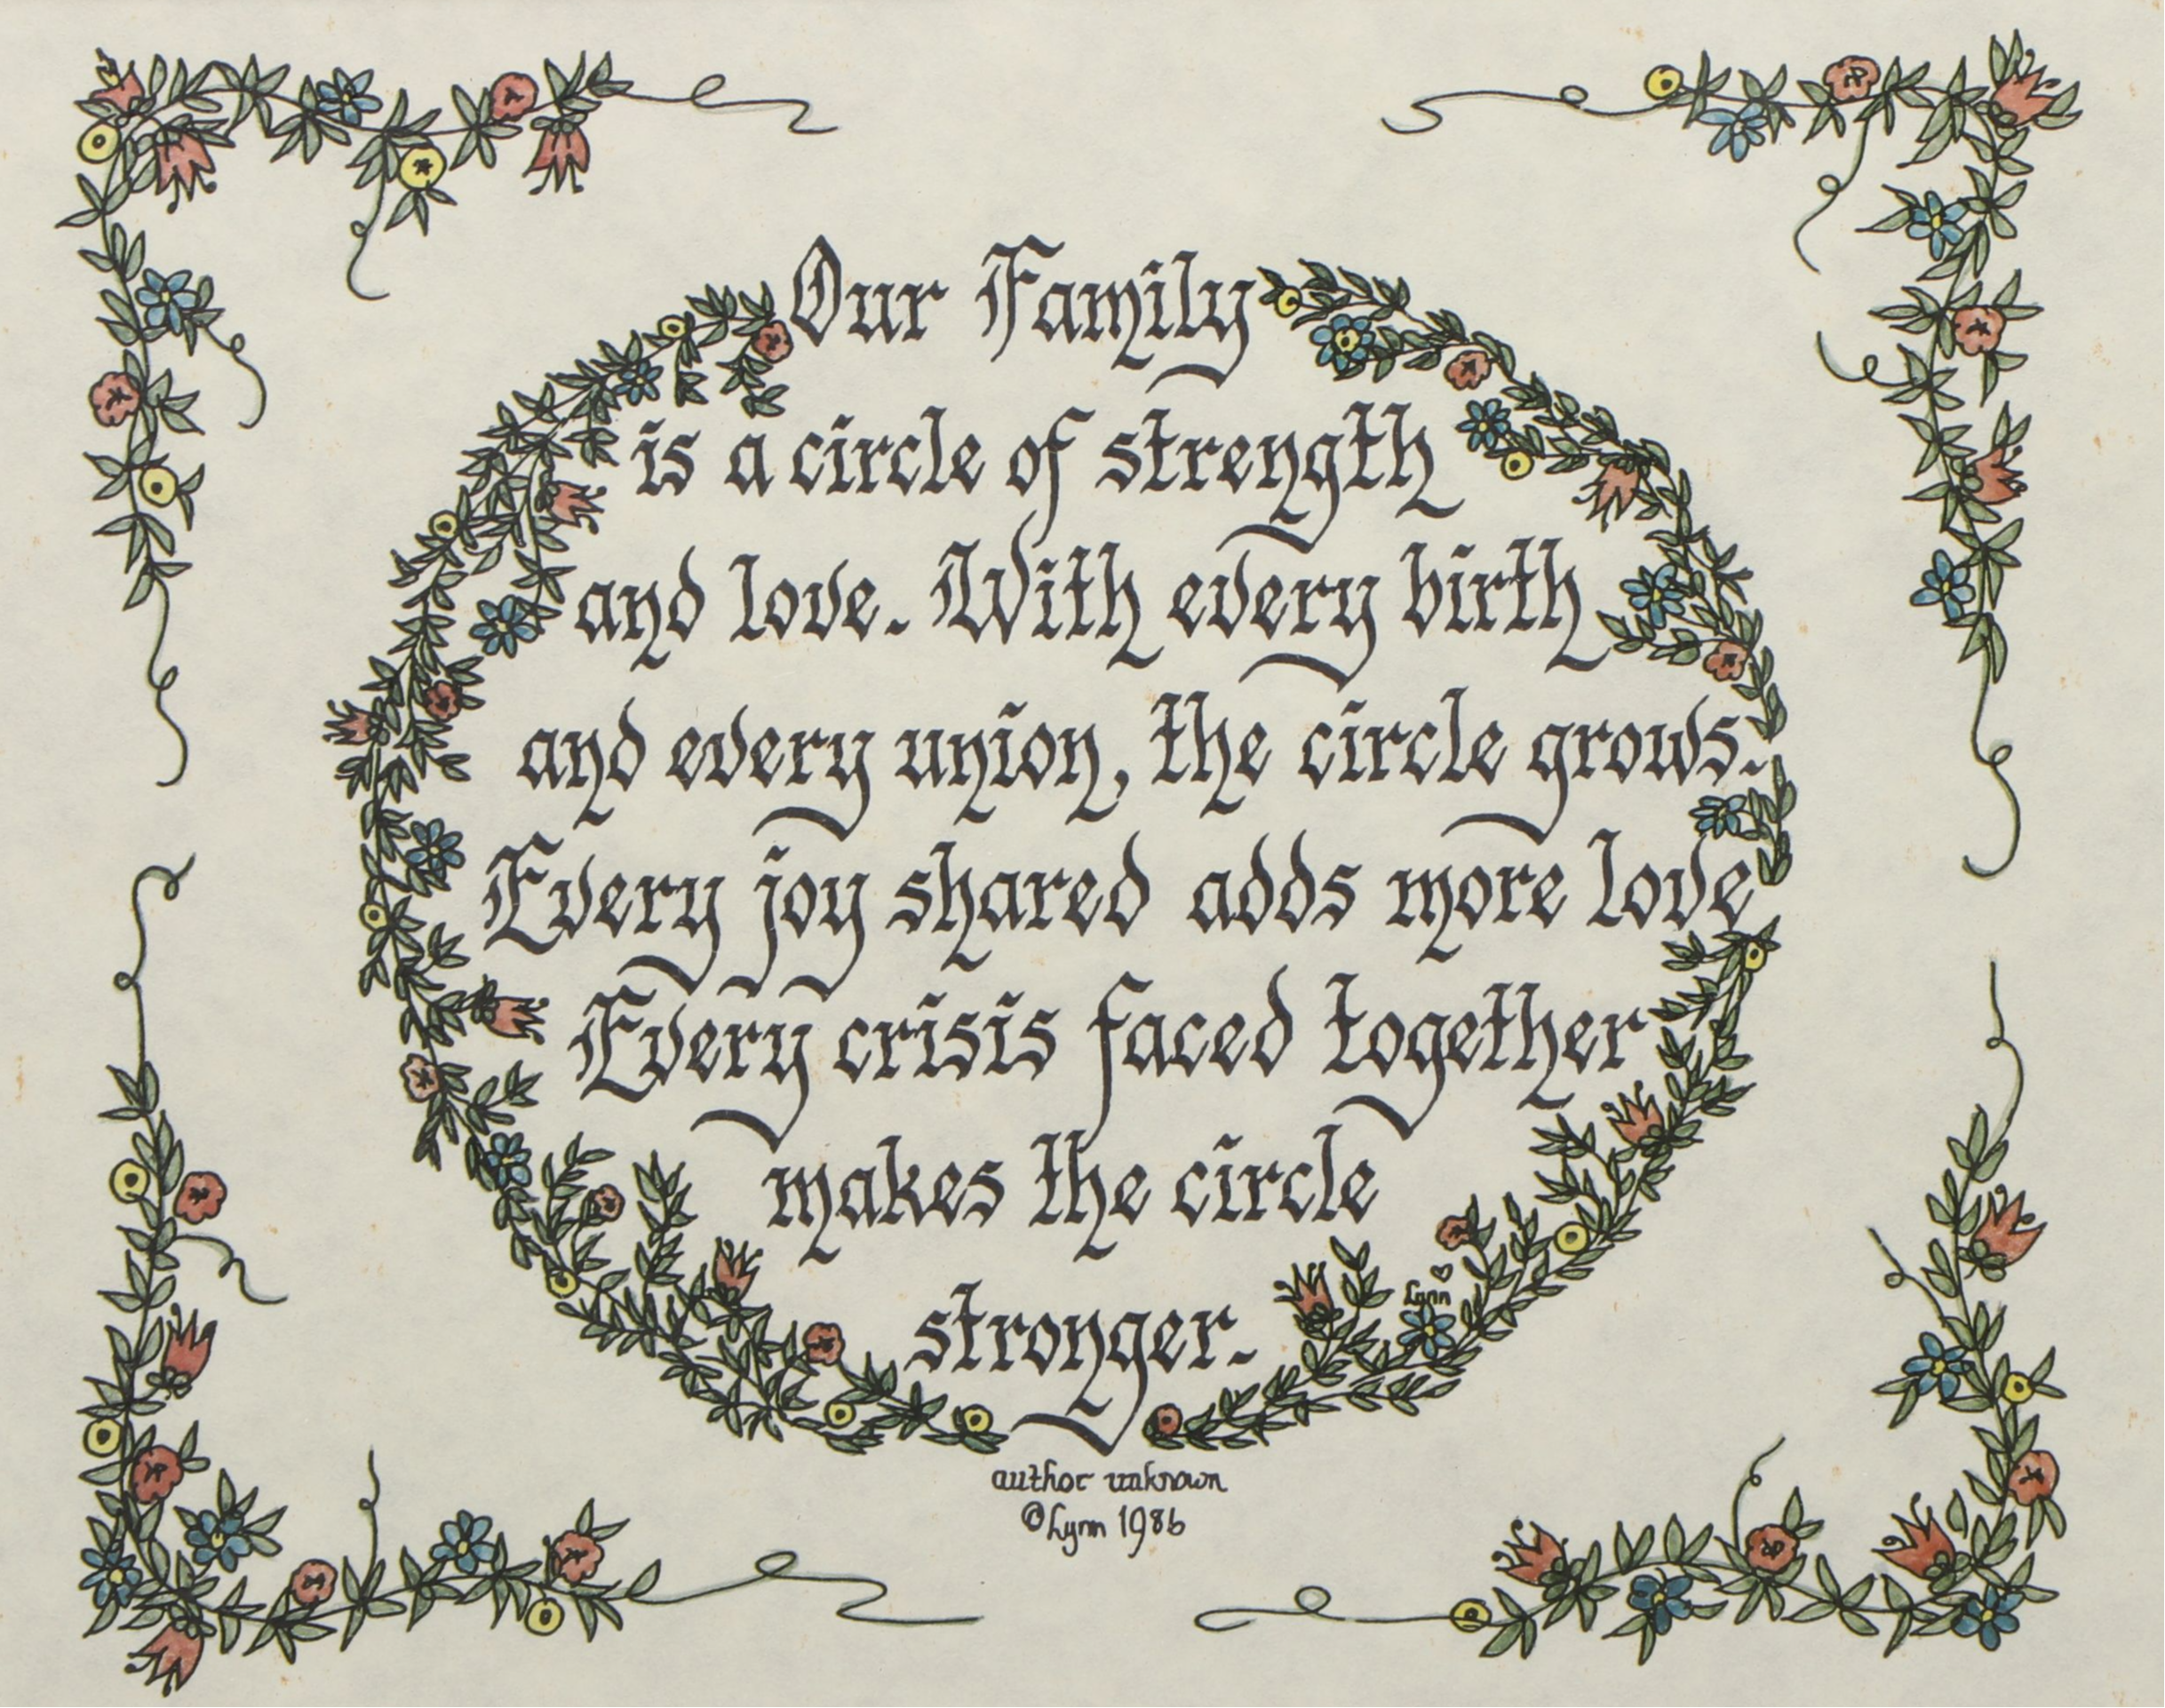 Our Family
is a circle of strength
and love. With every birth
and every union, the circle grows.
Every joy shared adds more love
Every crisis faced together
makes the circle
stronger.
Lynn
author unknown
©Lynn 1986